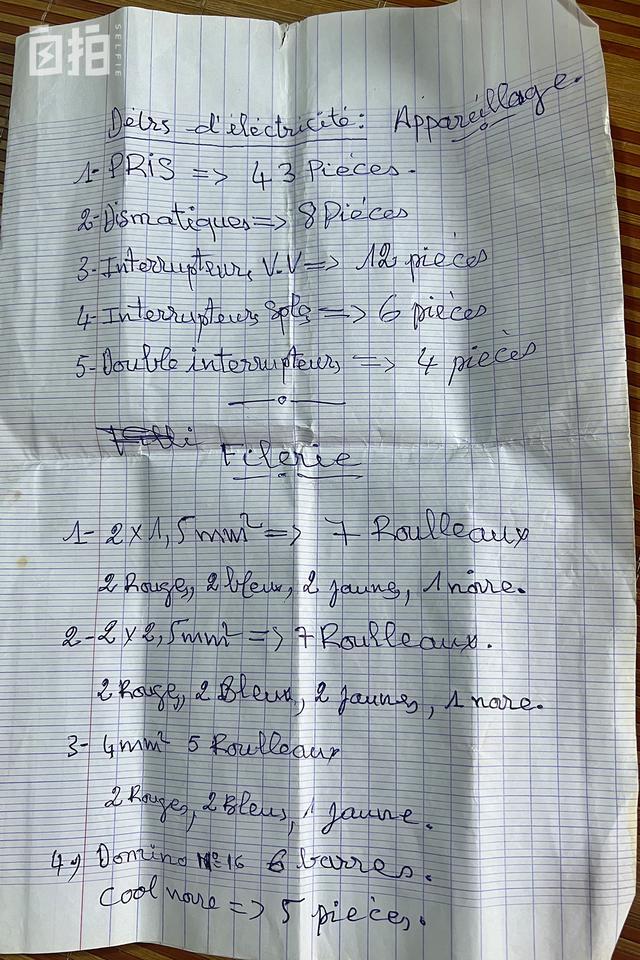 自拍
SELFIE
Détrs d'éléctricité: Appareillage.
1- PRiS => 43 Pièces.
2- Dismatiques => 8 Pièces
3- Interrupteurs V.V => 12 pièces
4- Interrupteurs Sples => 6 pièces
5- Double interrupteurs => 4 pièces
Filerie
1- 2 x 1,5mm² => 7 Roulleaux
2 Rouges, 2 bleux, 2 jaunes, 1 noire.
2- 2 x 2,5mm² => 7 Roulleaux.
2 Rouges, 2 Bleux, 2 jaunes, 1 noire.
3- 4mm² 5 Roulleaux
2 Rouges, 2 Bleus, 1 jaune.
4) Domino N°16 6 barres.
Cool noire => 5 pièces.